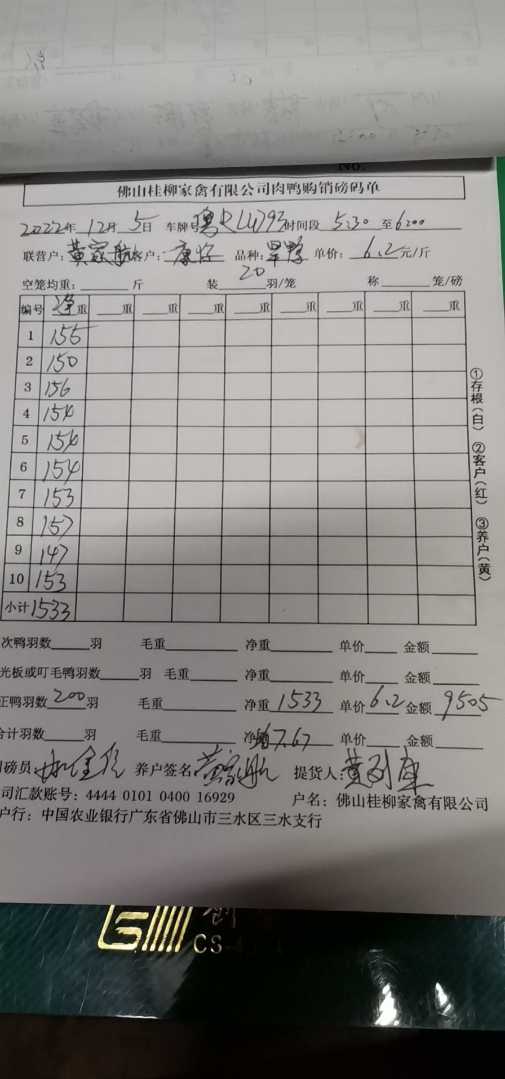 No.
佛山桂柳家禽有限公司肉鸭购销磅码单
2022年 12月 5日 车牌号 时间段 5:30 至 6:00
联营户: 黄家航 客户: 康 品种: 旱鸭 单价: 6.2元/斤
空笼均重: 斤 装 20 羽/笼 称 笼/磅
编号 净重 重 重 重 重 重 重 重
1 155
2 150
3 156
4 154
5 154
6 154
7 153
8 157
9 147
10 153
小计 1533
①存根(白) ②客户(红) ③养户(黄)
次鸭羽数 羽 毛重 净重 单价 金额
光板或叮毛鸭羽数 羽 毛重 净重 单价 金额
正鸭羽数 200 羽 毛重 净重 1533 单价 6.2 金额 9505
合计羽数 羽 毛重 净 7.67 单价 金额
司磅员: 养户签名: 黄家航 提货人: 黄
司汇款账号: 4444 0101 0400 16929 户名: 佛山桂柳家禽有限公司
户行: 中国农业银行广东省佛山市三水区三水支行
CS-